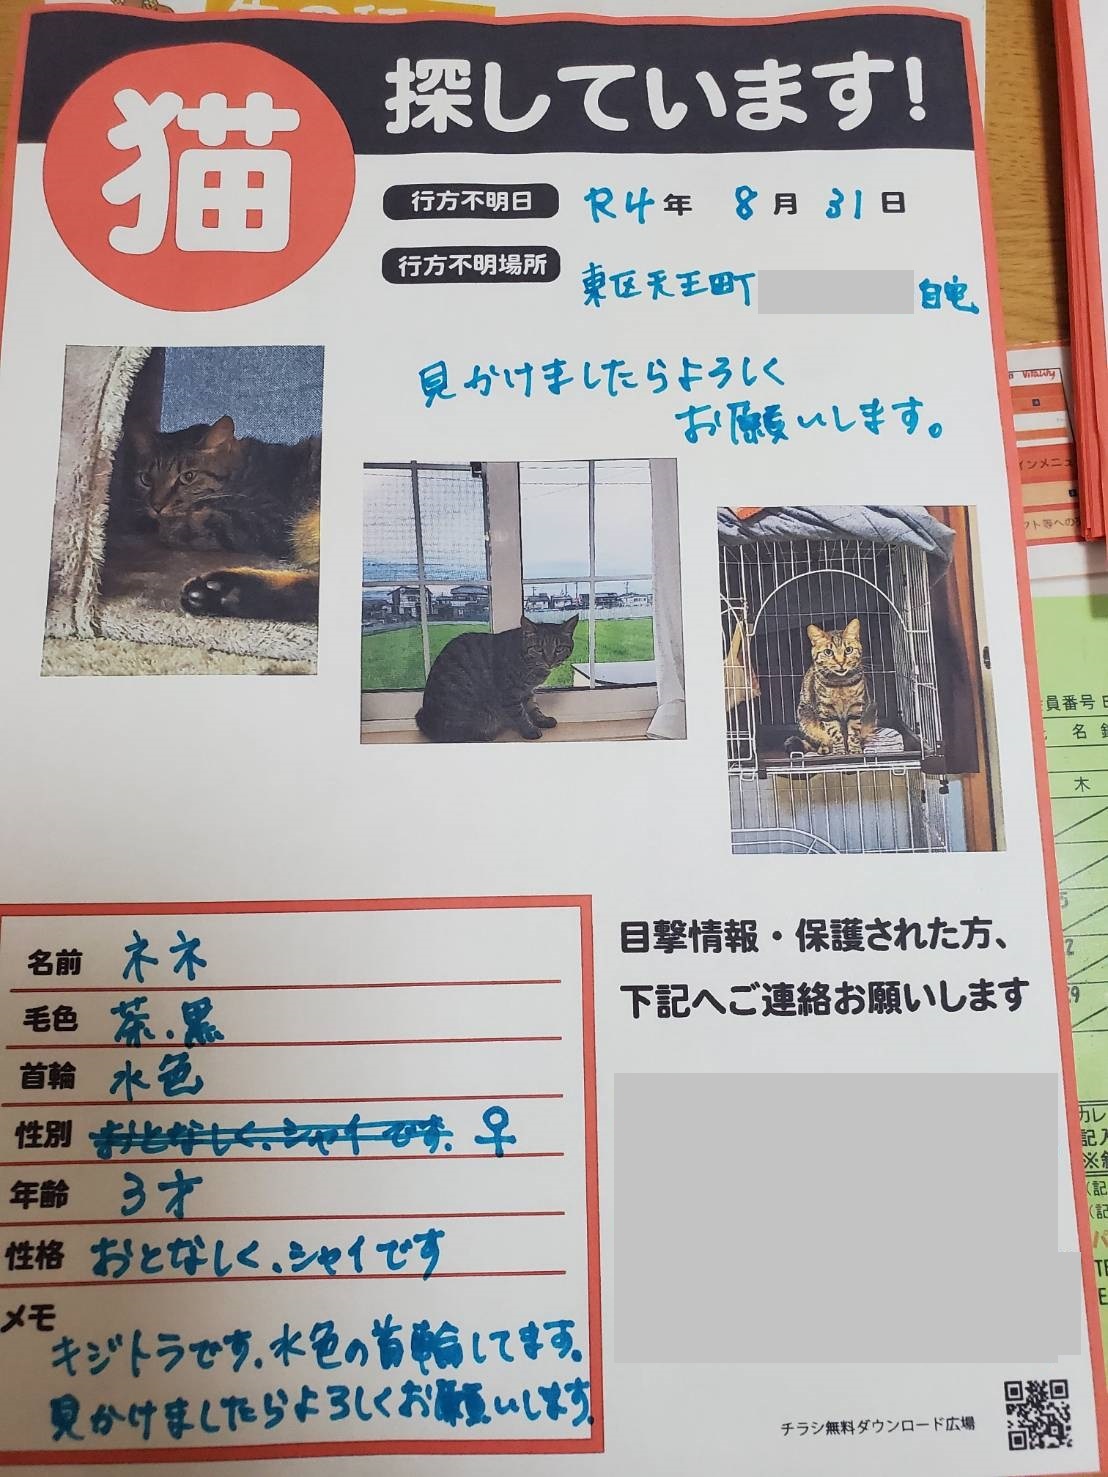 猫
探しています!
行方不明日 R4年 8月 31日
行方不明場所 東区天王町 自宅
見かけましたらよろしく
お願いします。
名前 ネネ
毛色 茶・黒
首輪 水色
性別 おとなしく、シャイです。 ♀
年齢 3才
性格 おとなしく、シャイです
メモ
キジトラです。水色の首輪してます。
見かけましたらよろしくお願いします。
目撃情報・保護された方、
下記へご連絡お願いします
チラシ無料ダウンロード広場
Vitality
インメニュ
員番号
名
木